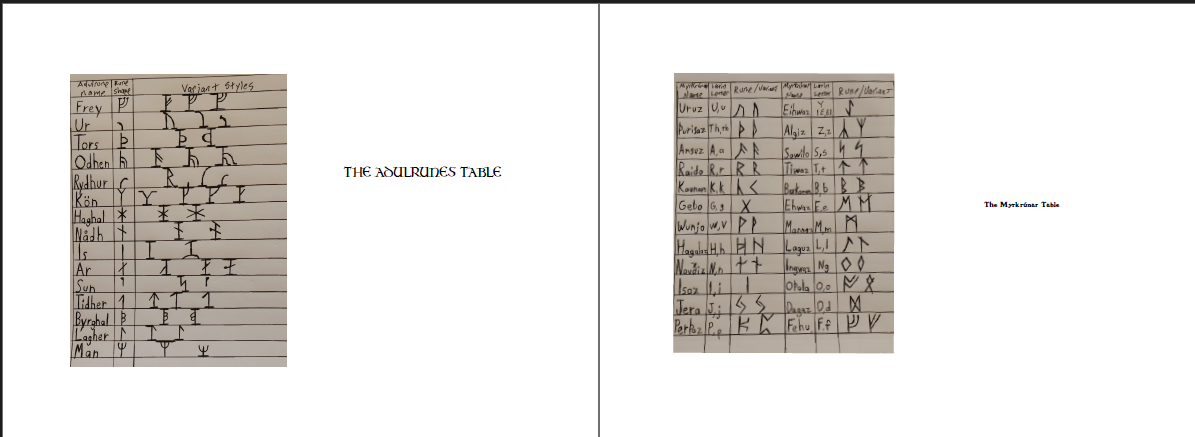 Adulrune name Rune Shape Variant Styles
Frey
Ur
Tors
Odhen
Rydhur
Kön
Haghal
Nådh
Is
Ar
Sun
Tidher
Byrghal
Lagher
Man
THE ADULRUNES TABLE
Myrkrúnar Name Latin Letter Rune/Variant Myrkrúnar Name Latin Letter Rune/Variant
Uruz U,u Eihwaz
Þurisaz Th,th Algiz Z,z
Ansuz A,a Sowilo S,s
Raido R,r Tiwaz T,t
Kaunan K,k B,b
Gebo G,g Ehwaz E,e
Wunjo W,V Mannaz M,m
Hagalaz H,h Laguz L,l
Naudiz N,n Ingwaz Ng
Isaz I,i Othala O,o
Jera J,j Dagaz D,d
Perþaz P,p Fehu F,f
The Myrkrúnar Table